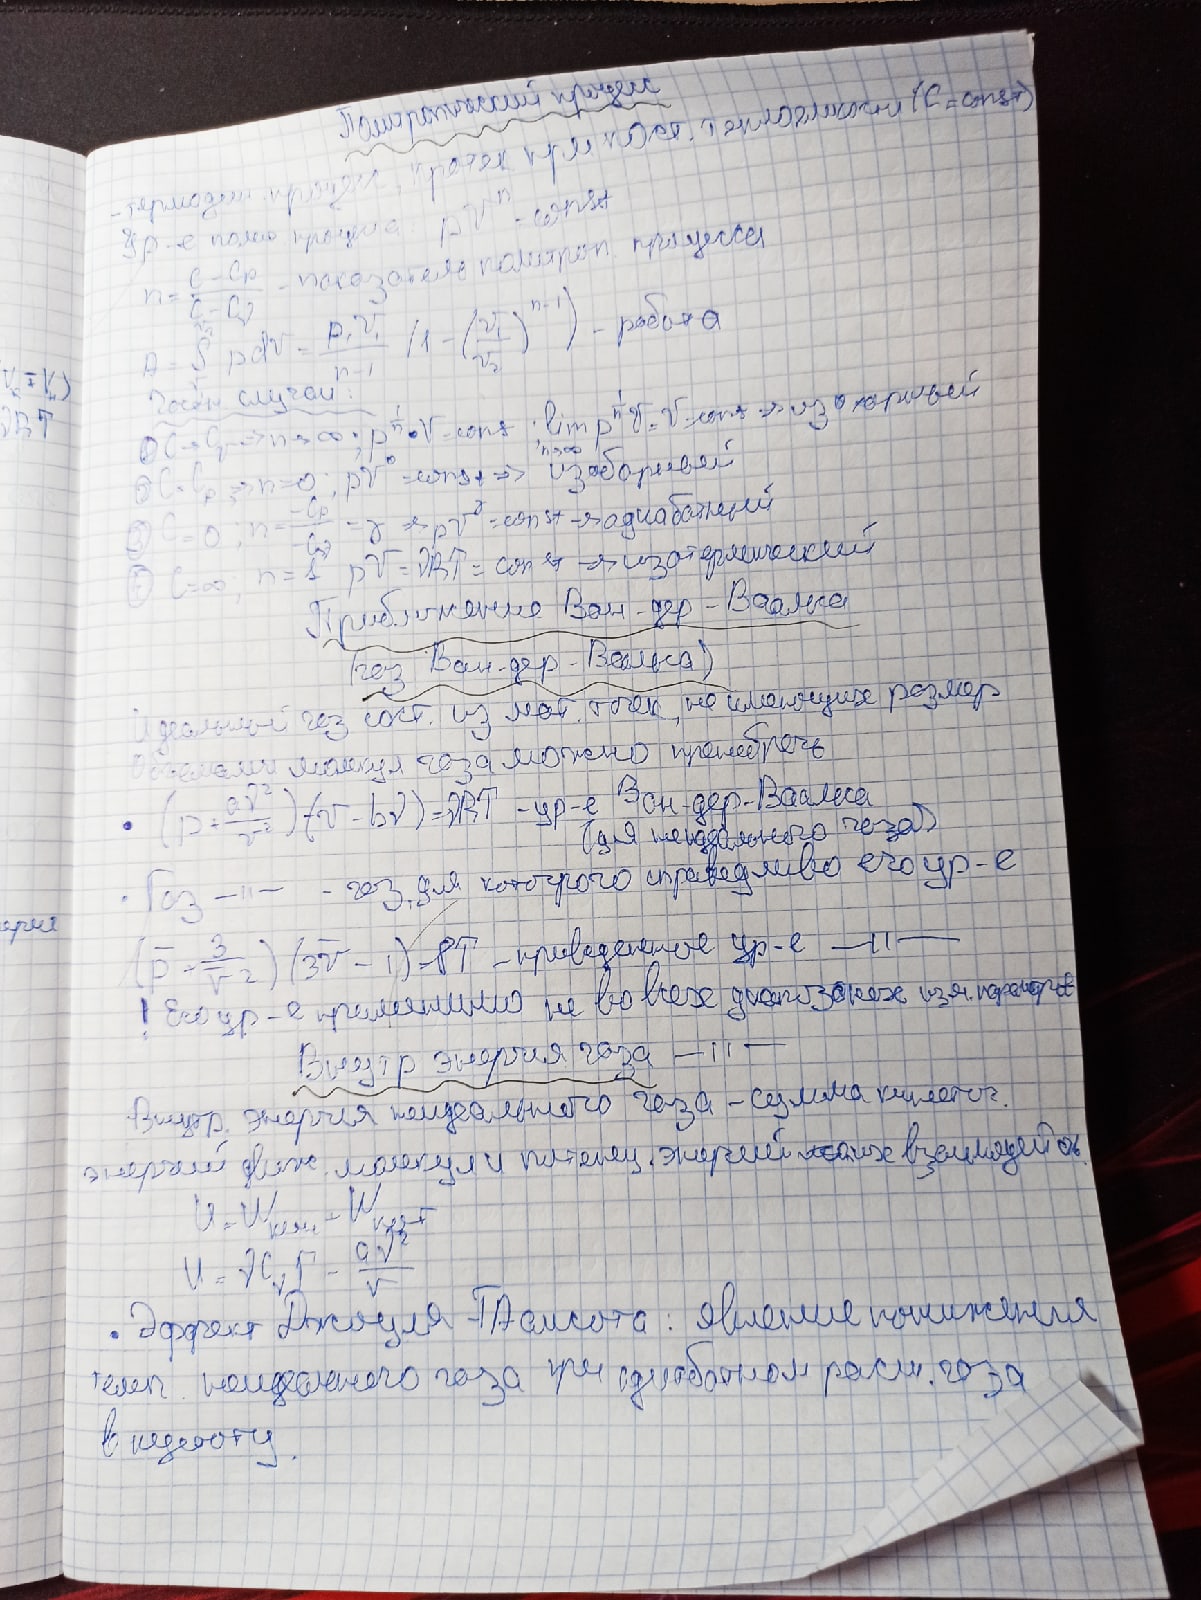 Политропический процесс
- термодин. процесс, протек. при пост. теплоёмкости (C = const)
Ур-е полит. процесса: pV^n = const
n = (C - Cp)/(C - Cv) - показатель политроп. процесса
A = ∫ pdV = p₁V₁/(n-1) (1 - (V₁/V₂)^(n-1)) - работа
Частн. случаи:
① C = Cv => n = ∞; p^(1/n)·V = const; lim p^(1/n) V = V = const => изохорный
n→∞
② C = Cp => n = 0; pV^0 = const => изобарный
③ C = 0; n = -Cp/-Cv = γ => pV^γ = const => адиабатный
④ C = ∞; n = 1 pV = νRT = const => изотермический
Приближение Ван-дер-Ваальса
(газ Ван-дер-Ваальса)
Идеальный газ сост. из мат. точек, не имеющих размер
Объемами молекул газа можно пренебречь
• (p + aν²/V²)(V - bν) = νRT - ур-е Ван-дер-Ваальса
(для неидеального газа)
• Газ —11— - газ, для которого справедливо его ур-е
(p̄ + 3/V̄²)(3V̄ - 1) = 8T - приведенное ур-е —11—
! Его ур-е применимо не во всех диапазонах изм. параметров
Внутр энергия газа —11—
Внутр. энергия неидеального газа - сумма кинетич.
энергий движ. молекул и потенц. энергий их взаимодейств.
U = W - W
U = νCvT - aν²/V
• Эффект Джоуля-Томсона: явление понижения
темп. неидеального газа при адиабатном расш. газа
в пустоту.